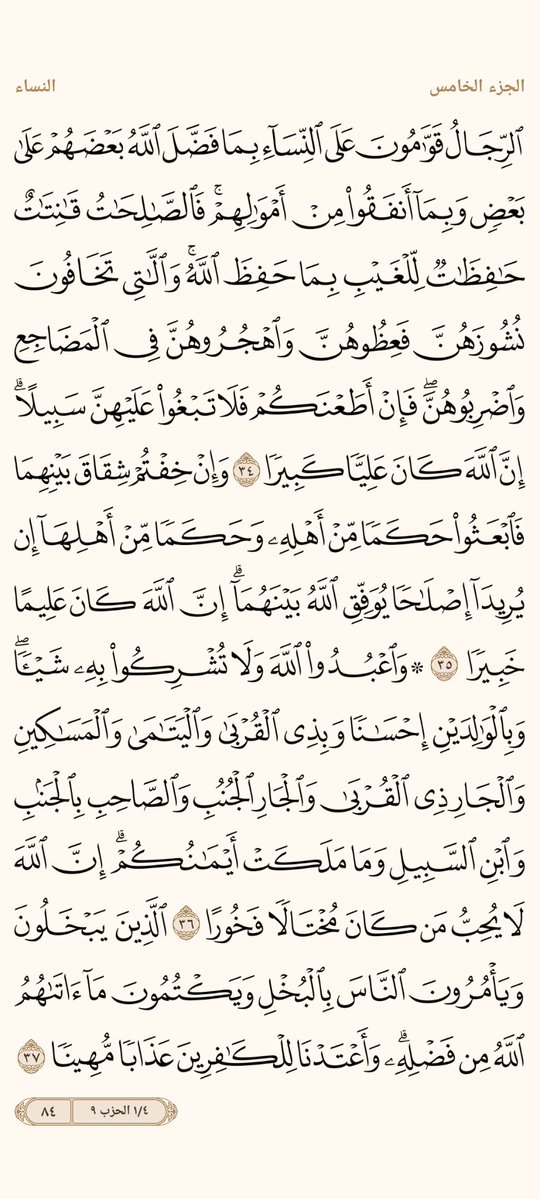 الجزء الخامس
النساء
ٱلرِّجَالُ قَوَّٰمُونَ عَلَى ٱلنِّسَآءِ بِمَا فَضَّلَ ٱللَّهُ بَعۡضَهُمۡ عَلَىٰ
بَعۡضٖ وَبِمَآ أَنفَقُواْ مِنۡ أَمۡوَٰلِهِمۡۚ فَٱلصَّٰلِحَٰتُ قَٰنِتَٰتٌ
حَٰفِظَٰتٞ لِّلۡغَيۡبِ بِمَا حَفِظَ ٱللَّهُۚ وَٱلَّٰتِي تَخَافُونَ
نُشُوزَهُنَّ فَعِظُوهُنَّ وَٱهۡجُرُوهُنَّ فِي ٱلۡمَضَاجِعِ
وَٱضۡرِبُوهُنَّۖ فَإِنۡ أَطَعۡنَكُمۡ فَلَا تَبۡغُواْ عَلَيۡهِنَّ سَبِيلًاۗ
إِنَّ ٱللَّهَ كَانَ عَلِيّٗا كَبِيرٗا ٣٤ وَإِنۡ خِفۡتُمۡ شِقَاقَ بَيۡنِهِمَا
فَٱبۡعَثُواْ حَكَمٗا مِّنۡ أَهۡلِهِۦ وَحَكَمٗا مِّنۡ أَهۡلِهَآ إِن
يُرِيدَآ إِصۡلَٰحٗا يُوَفِّقِ ٱللَّهُ بَيۡنَهُمَآۗ إِنَّ ٱللَّهَ كَانَ عَلِيمًا
خَبِيرٗا ٣٥ ۞ وَٱعۡبُدُواْ ٱللَّهَ وَلَا تُشۡرِكُواْ بِهِۦ شَيۡـٔٗاۖ
وَبِٱلۡوَٰلِدَيۡنِ إِحۡسَٰنٗا وَبِذِي ٱلۡقُرۡبَىٰ وَٱلۡيَتَٰمَىٰ وَٱلۡمَسَٰكِينِ
وَٱلۡجَارِ ذِي ٱلۡقُرۡبَىٰ وَٱلۡجَارِ ٱلۡجُنُبِ وَٱلصَّاحِبِ بِٱلۡجَنۢبِ
وَٱبۡنِ ٱلسَّبِيلِ وَمَا مَلَكَتۡ أَيۡمَٰنُكُمۡۗ إِنَّ ٱللَّهَ
لَا يُحِبُّ مَن كَانَ مُخۡتَالٗا فَخُورًا ٣٦ ٱلَّذِينَ يَبۡخَلُونَ
وَيَأۡمُرُونَ ٱلنَّاسَ بِٱلۡبُخۡلِ وَيَكۡتُمُونَ مَآ ءَاتَىٰهُمُ
ٱللَّهُ مِن فَضۡلِهِۦۗ وَأَعۡتَدۡنَا لِلۡكَٰفِرِينَ عَذَابٗا مُّهِينٗا ٣٧
١/٤ الحزب ٩
٨٤